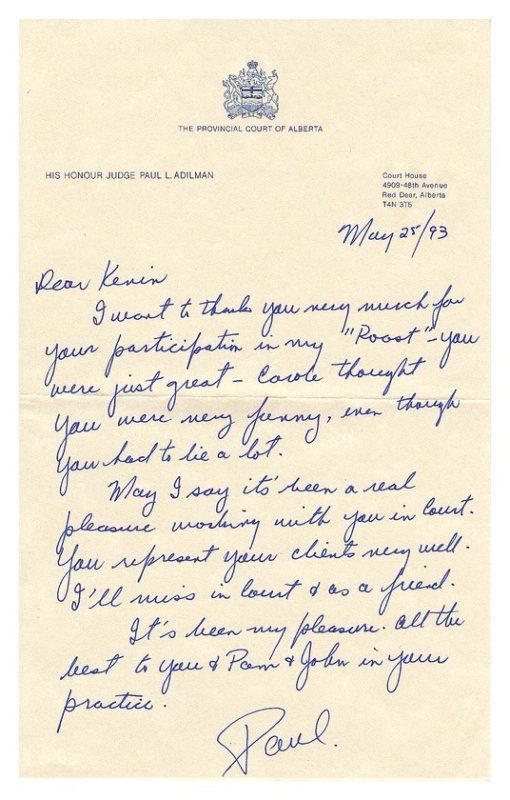 THE PROVINCIAL COURT OF ALBERTA
HIS HONOUR JUDGE PAUL L. ADILMAN
Court House
4909-48th Avenue
Red Deer, Alberta
T4N 3T5
May 25/93
Dear Kevin
I want to thank you very much for
your participation in my "Roast" - you
were just great - Carole thought
you were very funny, even though
you had to lie a lot.
May I say it's been a real
pleasure working with you in Court.
You represent your clients very well.
I'll miss in Court & as a friend.
It's been my pleasure. All the
best to you & Pam & John in your
practice.
Paul.